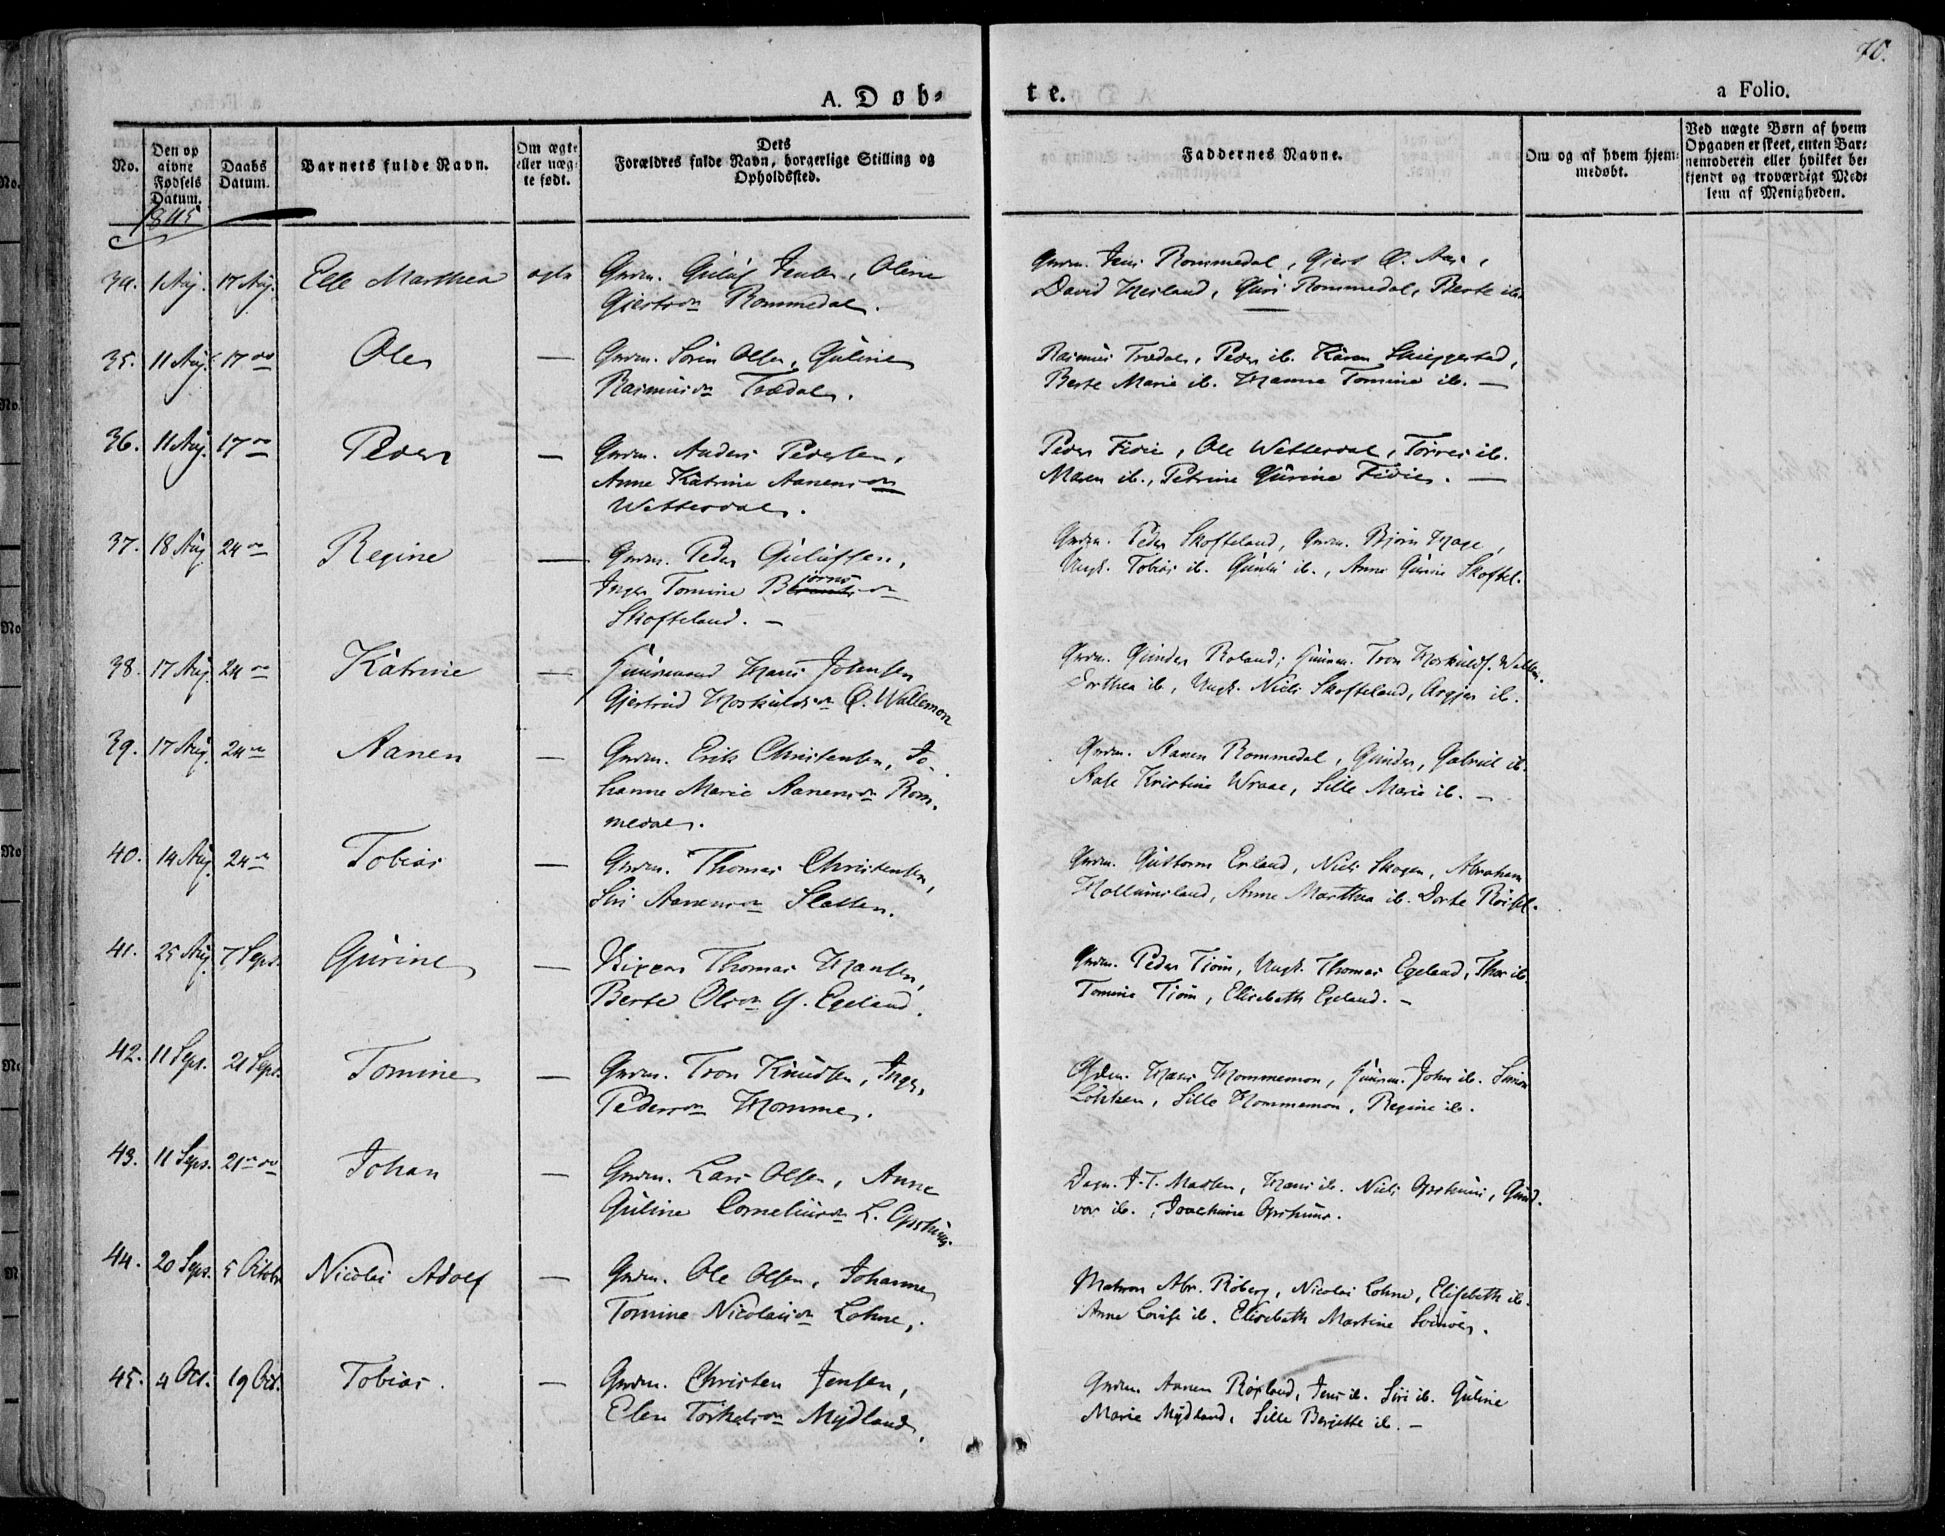 70.
A. Døb-
te.
a Folio.
No.
Den opgivne Fødsels Datum.
Daabs Datum.
Barnets fulde Navn.
Om ægte eller uægte født.
Dets Forældres fulde Navn, borgerlige Stilling og Opholdssted.
Faddernes Navne.
Om og af hvem hjemmedøbt.
Ved uægte Børn af hvem Opgaven er skeet, enten Barnemoderen eller hvilket bekjendt og troværdigt Medlem af Menigheden.
1845
34. 1 Aug. 17 Aug. Elle Marthea ægte Grdm. Guluf Jensen, Oline
Gjertsdr Rommedal.
Grdm. Jens Rommedal, Gjert Ø. Aase,
David Hesland, Guri Rommedal, Berte ib.
35. 11 Aug. 17 do Ole — Grdm. Sørin Olsen, Guline
Rasmusdr Trædal.
Rasmus Trædal, Peder ib. Karen Skieggestad,
Berte Marie ib. Hanna Tomine ib. —
36. 11 Aug. 17 do Peder — Grdm. Anders Pedersen,
Anne Katrine Aanensdr
Wetterdal.
Peder Fidie, Ole Wetterdal, Torres ib.
Maren ib., Petrine Gurine Fidie. —
37. 18 Aug. 24 do Regine — Grdm. Peder Gulufsen,
Inger Tomine Bjørnsdr
Skofteland. —
Grdm. Peder Skofteland, Grdm. Bjørn Hage,
Ungk. Tobias ib. Gunild ib., Anne Gurine Skoftel.
38. 17 Aug. 24 do Katrine — Huusmand Hans Johnsen
Gjertrud Hoskuldsdr Ø. Wallemon
Grdm. Gunder Roland, Huusm. Tron Hoskulds. Wallem.
Dorthea ib, Ungk. Niels Skofteland, Asgjer ib.
39. 17 Aug. 24 do Aanen — Grdm. Erik Christensen, Jo-
hanne Marie Aanensdr Rom-
medal.
Grdm. Aanen Rommedal, Gunder, Gabriel ib.
Aase Kristine Wraae, Sille Marie ib. —
40. 14 Aug. 24 do Tobias — Grdm. Thomas Christensen,
Siri Aanensdr Slatten.
Grdm. Guttorm Erland, Niels Skogen, Abraham
Hollumsland, Anne Marthea ib. Dorte Røisel.
41. 25 Aug. 7 Sept. Gurine — Thomas Hansen,
Berte Olsdr Y. Egeland.
Grdm. Peder Tjøm, Ungk. Thomas Egeland, Thor ib.
Tomine Tjøm, Elisabeth Egeland. —
42. 11 Sept. 21 Sept. Tomine — Grdm. Tron Knudsen, Inger
Pedersdr Homme.
Grdm. Hans Hommemon, Huusm. John ib. Simon
Løhken, Sille Hommemon, Regine ib.
43. 11 Sept. 21 do Johan — Grdm. Lars Olsen, Anne
Guline Corneliusdr L. Opshuus.
J. T. Madsen, Hans ib. Niels Opshuus, Gund-
vor ib., Joachime Opshuus.
44. 20 Sept. 5 October Nicolai Adolf — Grdm. Ole Olsen, Johanne
Tomine Nicolaisdr Lohne,
Matros Abr. Roberg, Nicolai Lohne, Elisabeth ib.
Anne Lovise ib. Elisabeth Martine
45. 4 Oct. 19 Oct. Tobias. — Grdm. Christen Jensen,
Elen Torkelsdr Mydland.
Grdm. Aanen Røsland, Jens ib. Siri ib. Guline
Marie Mydland, Sille Bergitte ib. —